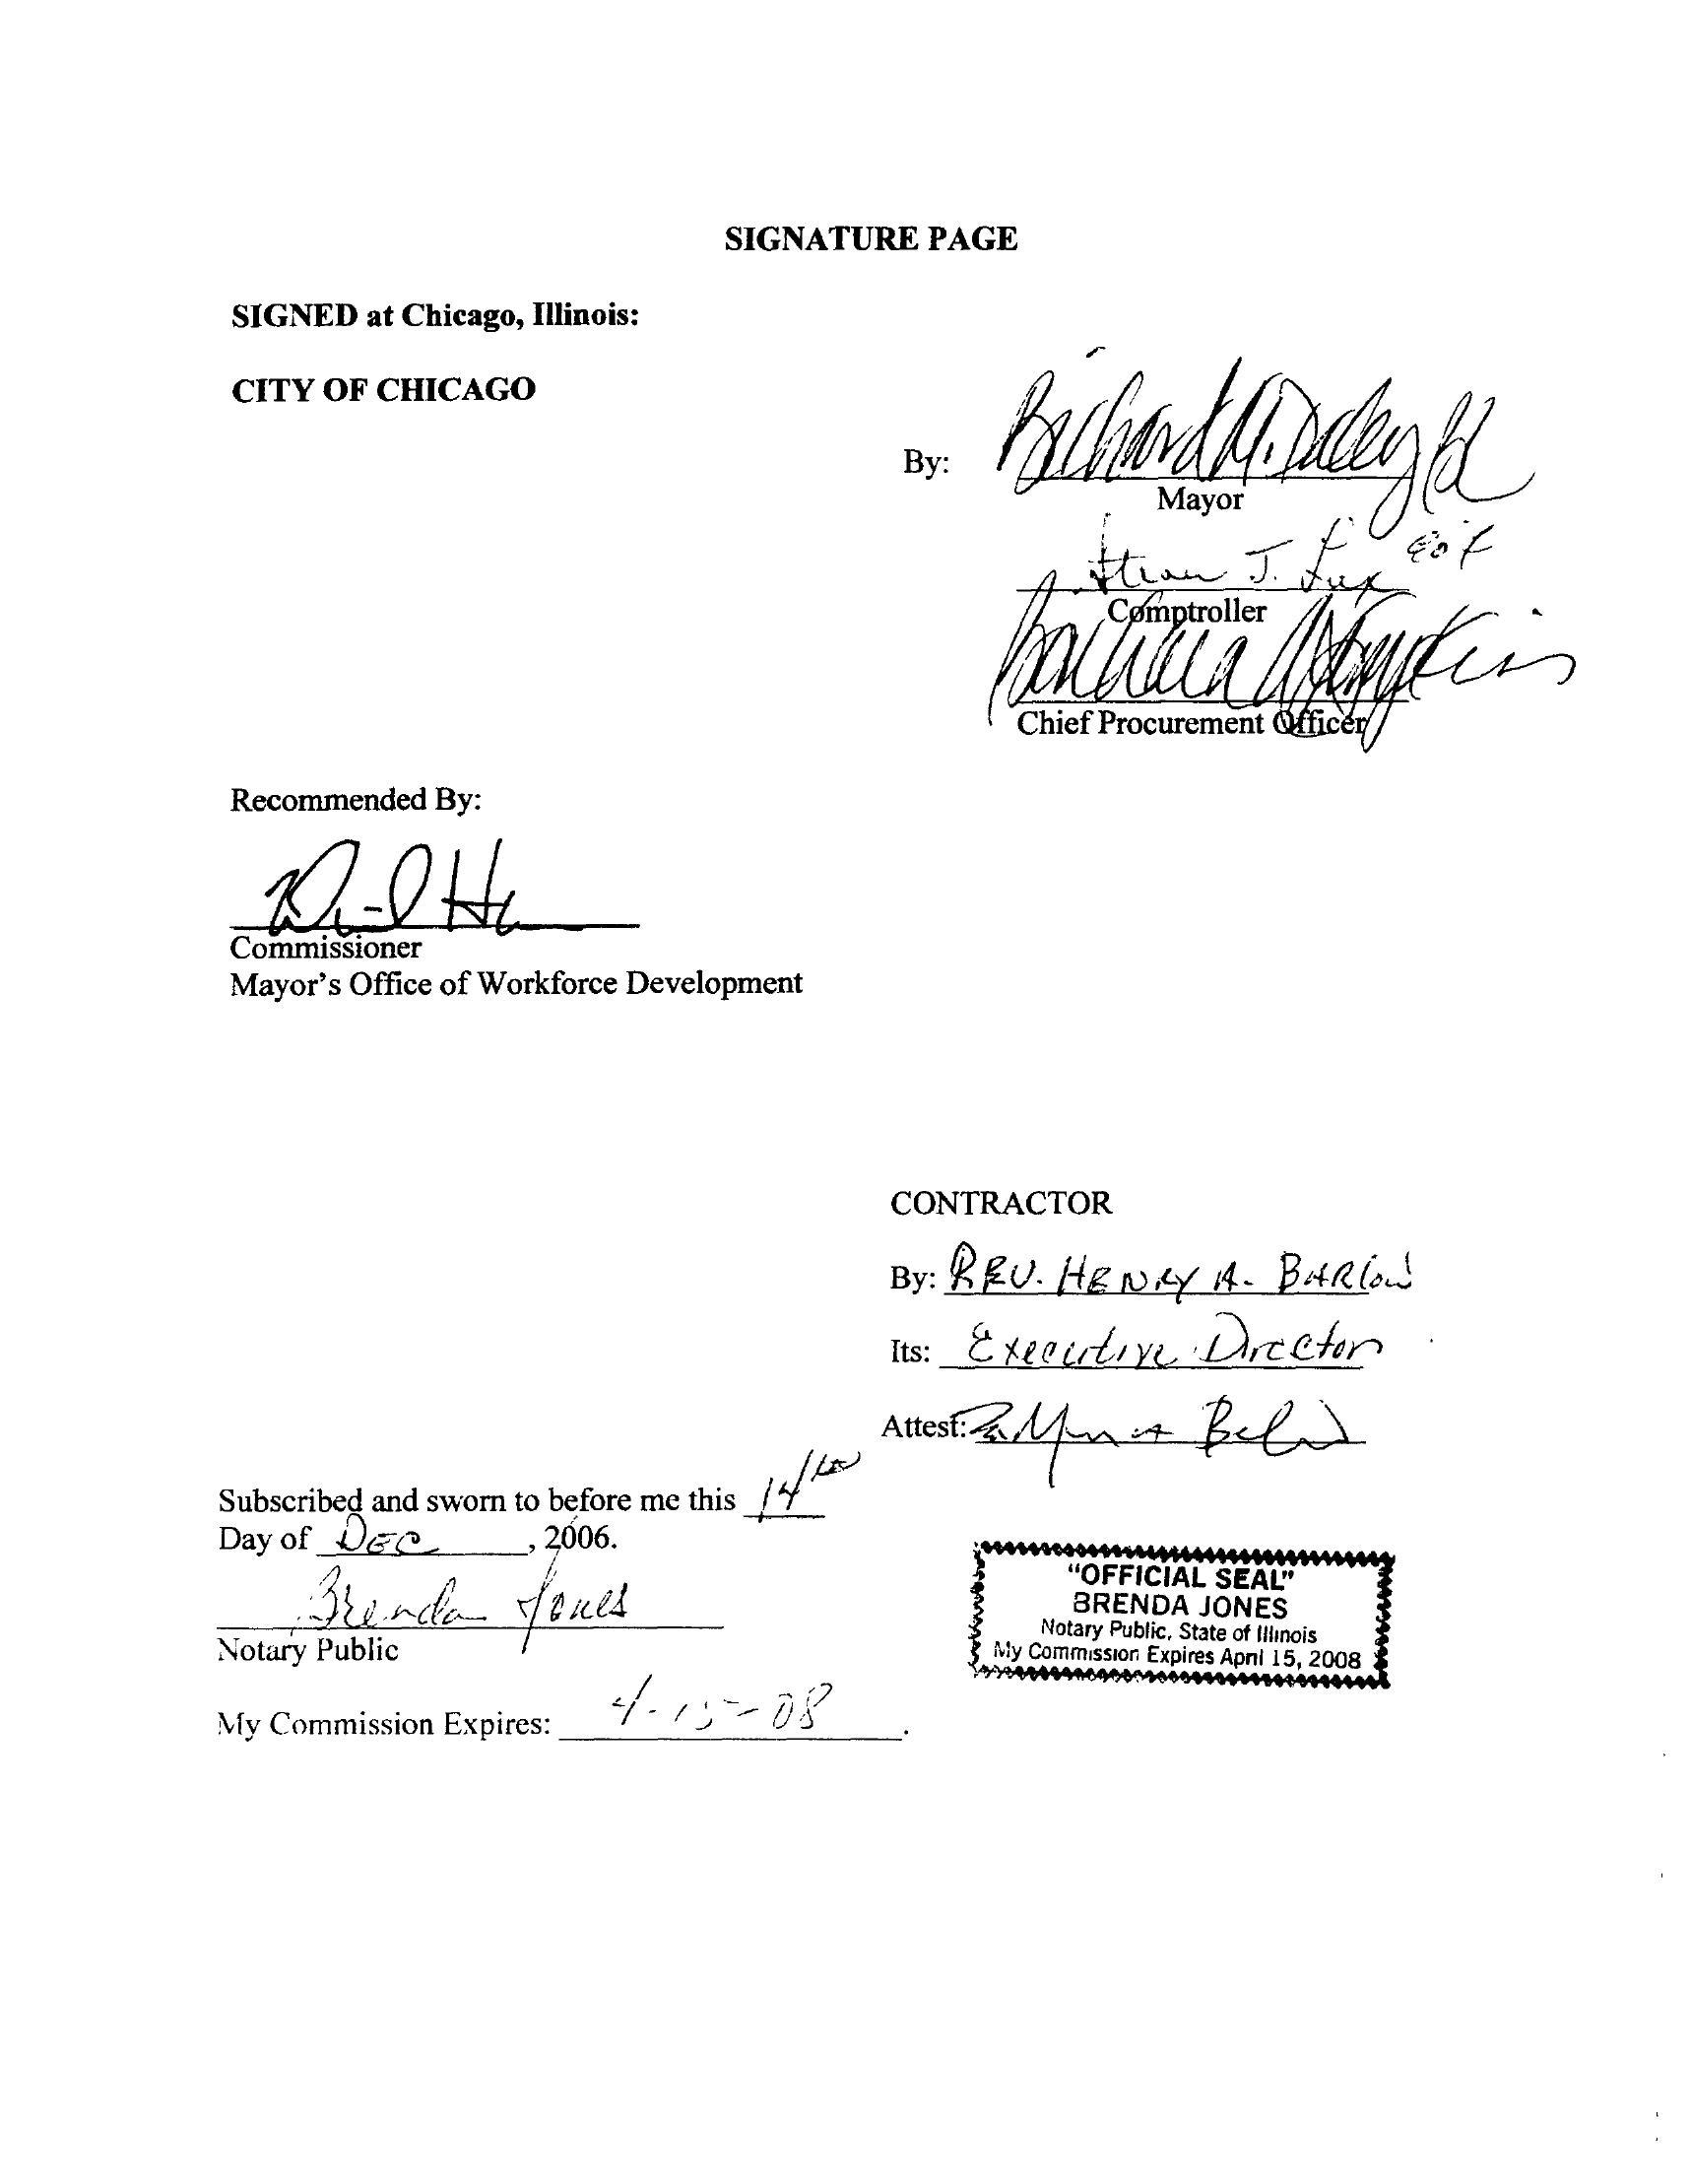 SIGNATURE PAGE
SIGNED at Chicago, Illinois:
CITY OF CHICAGO
By: Richard M. Daley
Mayor
J. Lux
Comptroller
Barbara
Chief Procurement Officer
Recommended By:
Commissioner
Mayor's Office of Workforce Development
CONTRACTOR
By: REV. HENRY A. BARlow
Its: Executive Director
Attest:
Subscribed and sworn to before me this 14th
Day of DEC, 2006.
Brenda Jones
Notary Public
"OFFICIAL SEAL"
BRENDA JONES
Notary Public, State of Illinois
My Commission Expires April 15, 2008
My Commission Expires: 4-15-08.